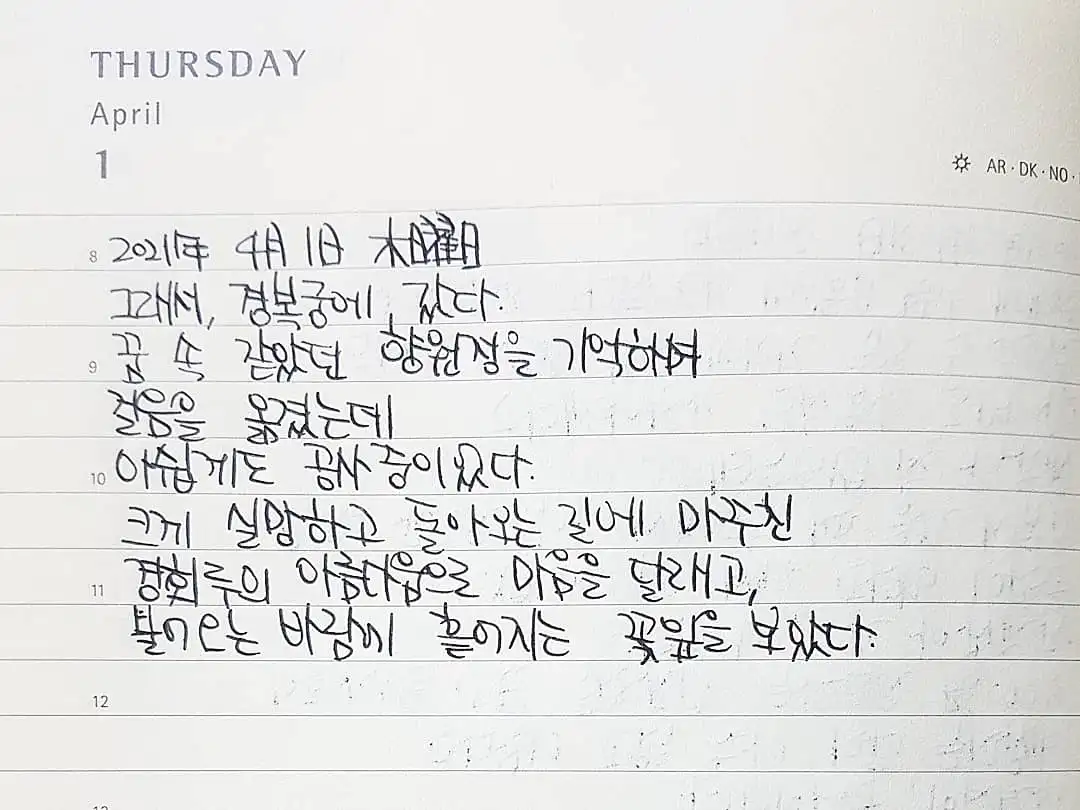 THURSDAY
April
1
AR·DK·NO·
8 2021年 4月 1日 木曜日
그래서, 경복궁에, 갔다.
9 꿈 속 같았던 향원정을 기억하며
걸음을 옮겼는데
10 아쉽게도 공사 중이었다.
크게 실망하고 돌아오는 길에 마주친
11 경회루의 아름다움으로 마음을 달래고,
불어오는 바람에 흩어지는 꽃잎을 보았다.
12